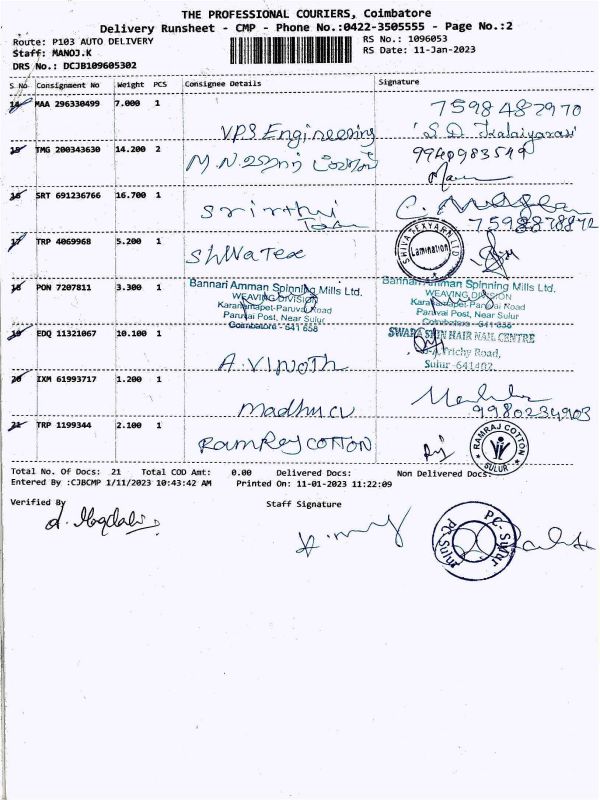 THE PROFESSIONAL COURIERS, Coimbatore
Delivery Runsheet - CMP - Phone No.:0422-3505555 - Page No.:2
Route: P103 AUTO DELIVERY
RS No.: 1096053
Staff: MANOJ.K
RS Date: 11-Jan-2023
DRS No.: DCJB109605302
S No Consignment No Weight PCS Consignee Details Signature
14 MAA 296330499 7.000 1
7598487970
VPS Engineering
15 TMG 200343630 14.200 2
9940983549
M.N.
16 SRT 691236766 16.700 1
7598878872
17 TRP 4069968 5.200 1
Shivatex
SHIVA TEXYARN LTD
Lamination
18 PON 7207811 3.300 1
Bannari Amman Spinning Mills Ltd.
WEAVING DIVISION
Karanampet-Paruvai Road
Paruvai Post, Near Sulur
Coimbatore - 641 658
Bannari Amman Spinning Mills Ltd.
WEAVING DIVISION
Karanampet-Paruvai Road
Paruvai Post, Near Sulur
Coimbatore - 641 658
19 EDQ 11321067 10.100 1
A.VINOTH
SWARA SKIN HAIR NAIL CENTRE
Trichy Road,
Sulur-641402
20 IXM 61993717 1.200 1
madhu cv
9980234903
21 TRP 1199344 2.100 1
RamRaj COTTON
RAMRAJ COTTON
SULUR
Total No. Of Docs: 21 Total COD Amt: 0.00 Delivered Docs: Non Delivered Docs:
Entered By :CJBCMP 1/11/2023 10:43:42 AM Printed On: 11-01-2023 11:22:09
Verified By Staff Signature
PC-Sulur
PC-Sulur